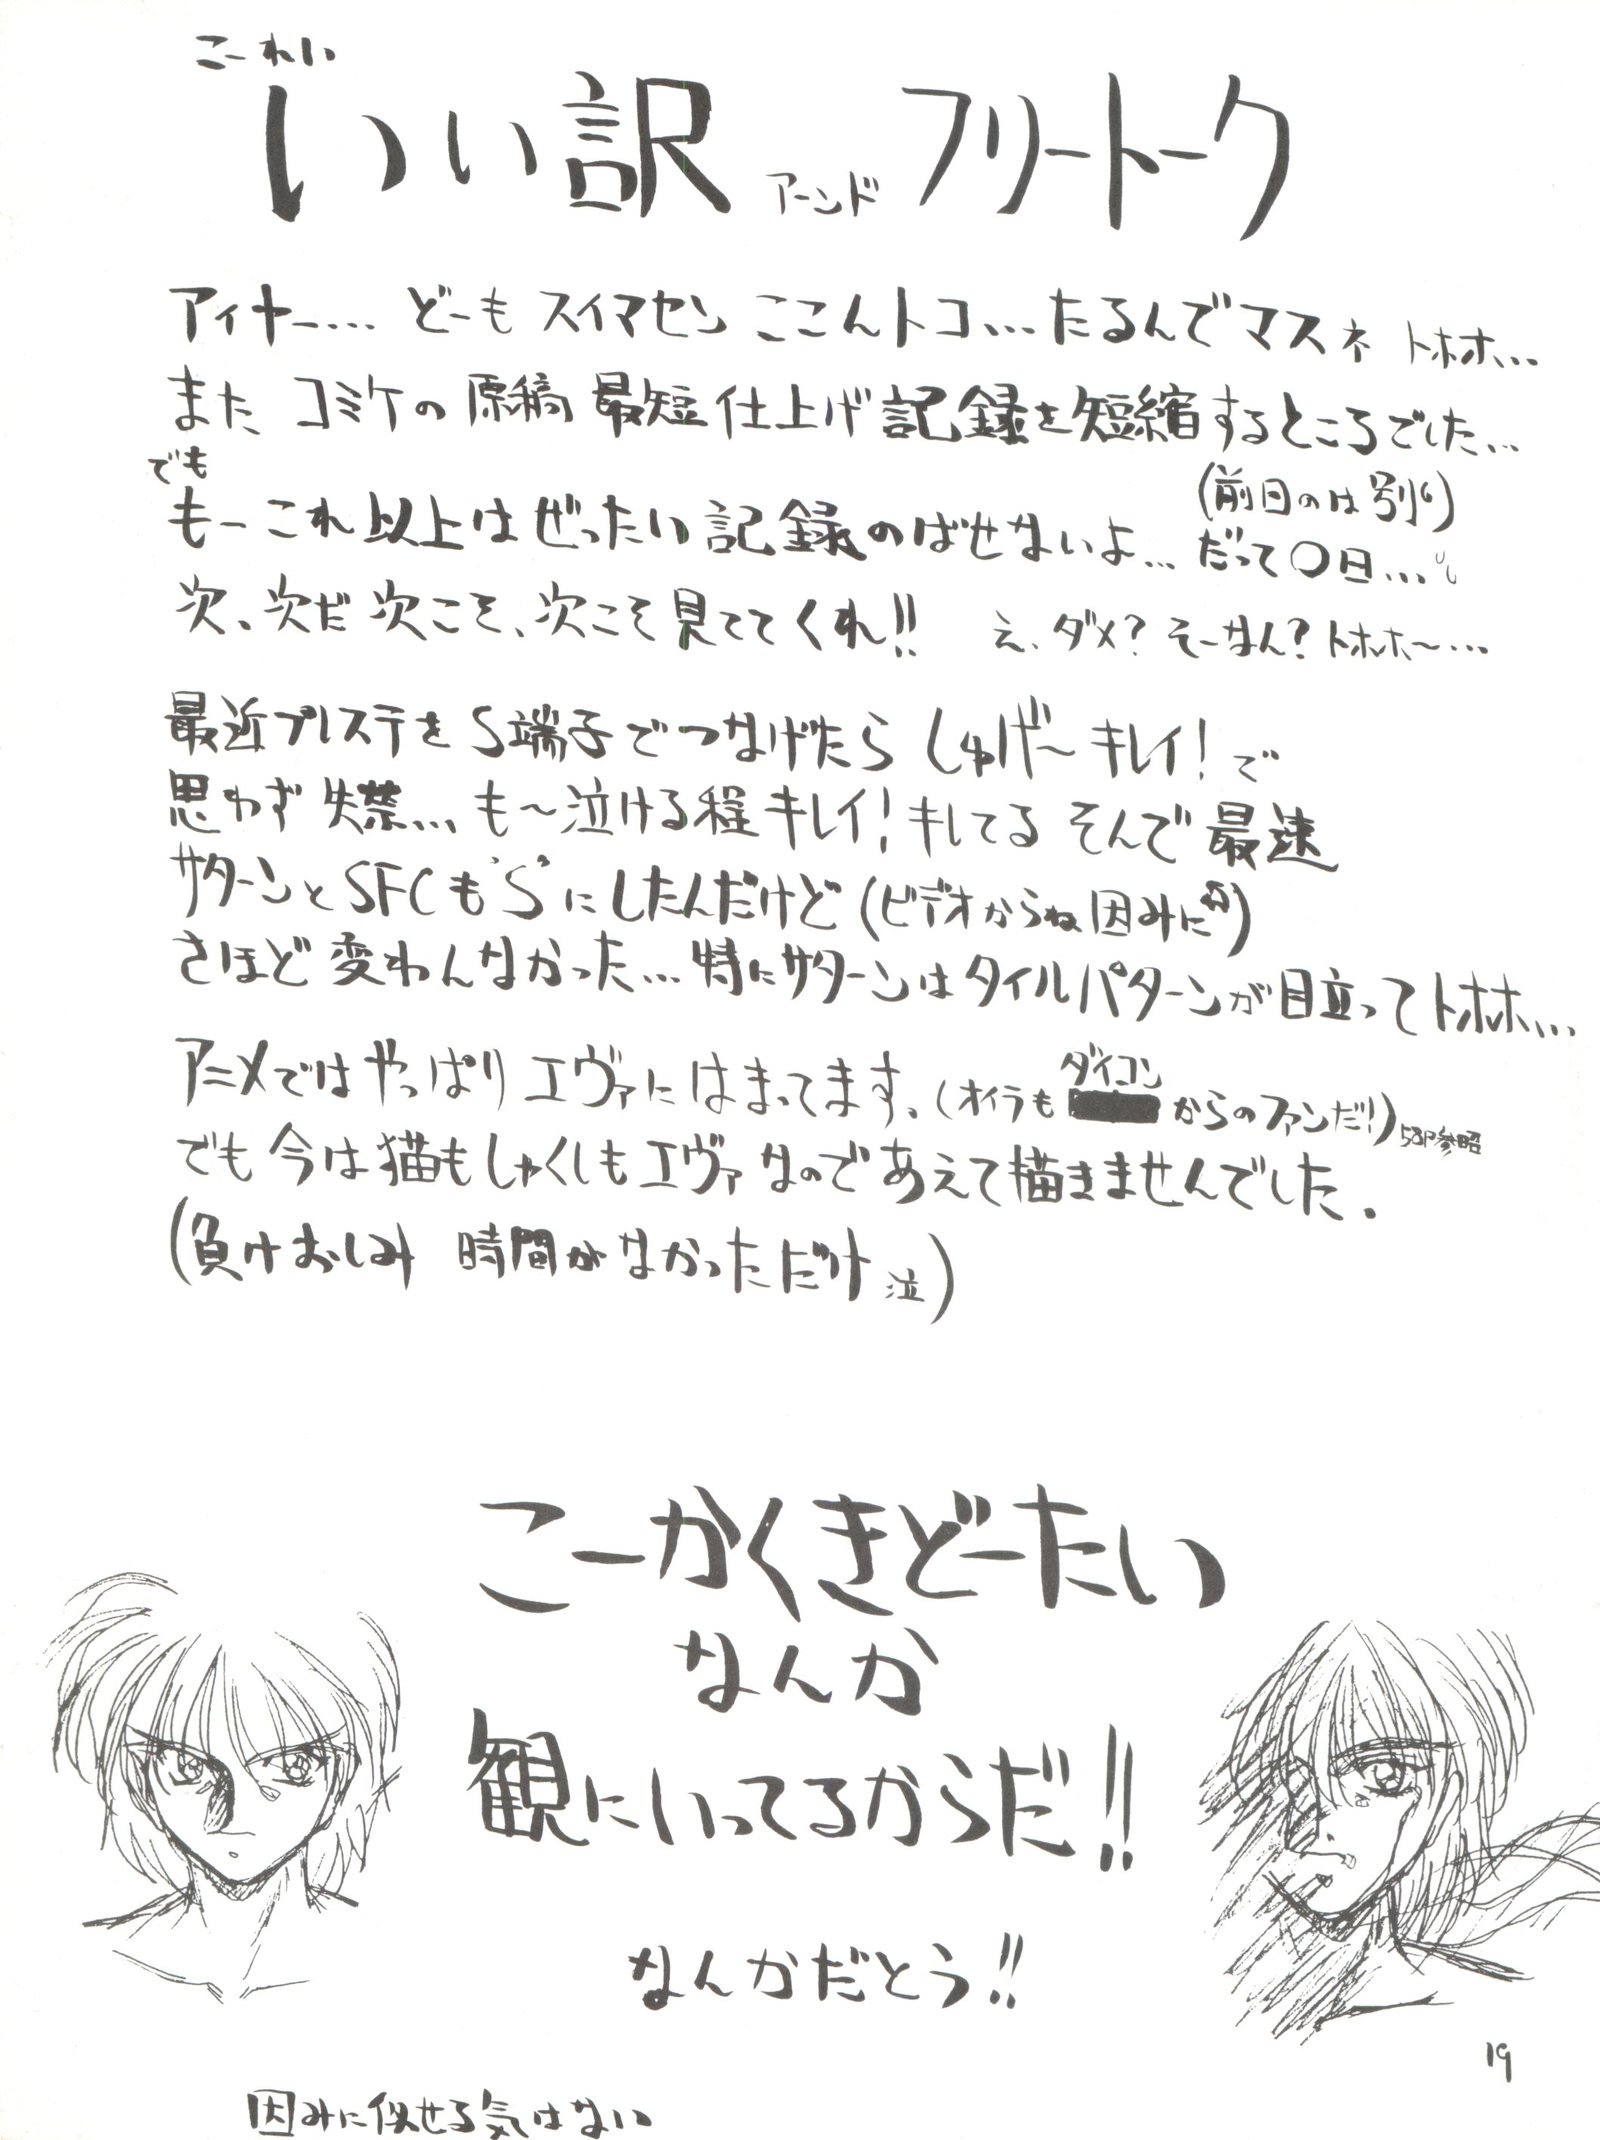 こーれい
いい訳 アーンド フリートーク
アィヤー.... どーも スイマセン ここんトコ...たるんでマスネ トホホ...
また コミケの原稿 最短仕上げ記録を短縮するところでした...
でも
もーこれ以上はぜったい記録のばせないよ... だって〇日...
(前日のは別)
次、次だ 次こそ、次こそ見ててくれ!! え、ダメ? そーなん? トホホ〜...
最近プレステをS端子でつなげたら しゅげ〜 キレイ! で
思わず失禁... も〜泣ける程キレイ! キレてる そんで最速
サターンとSFCも"S"にしたんだけど (ビデオからね 因みに)
さほど変わんなかった... 特にサターンはタイルパターンが目立ってトホホ...
アニメではやっぱりエヴァにはまってます。(オイラもダイコンからのファンだ!) 58P参照
でも今は猫もしゃくしもエヴァなのであえて描きませんでした。
(負けおしみ 時間がなかっただけ 泣)
こーかくきどーたい
なんか
観にいってるからだ!!
なんかだとう!!
19
因みに似せる気はない